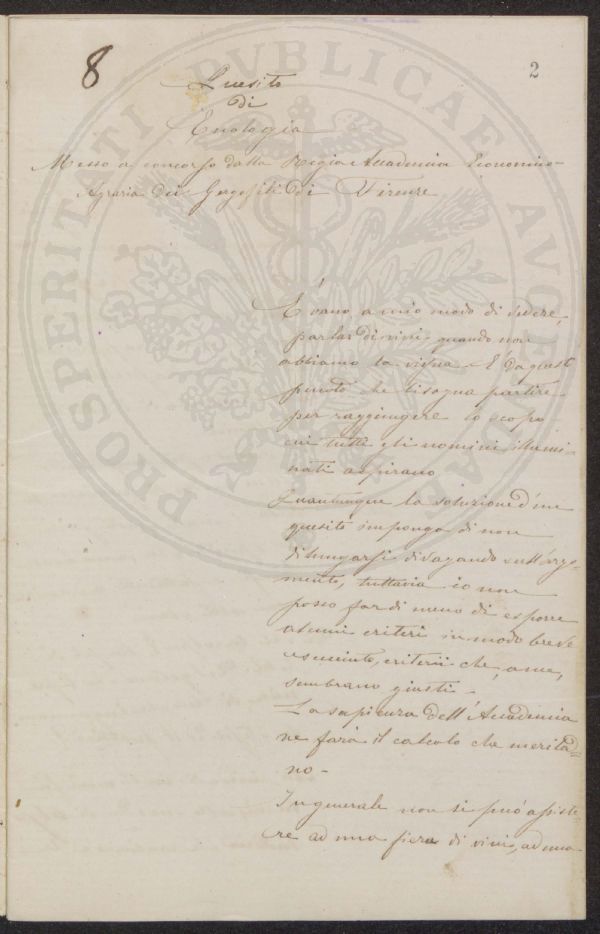 8
2
Quesito
di
Enologia
Messo a concorso dalla Regia Accademia Economico-
Agraria dei Gergofili di Firenze
PROSPERITATI PVBLICAE AVGENDAE
È vano, a mio modo di vedere,
parlar di vini, quando non
abbiamo la vigna. È da questo
punto che bisogna partire
per raggiungere lo scopo
cui tutti gli uomini illumi-
nati aspirano
Quantunque la soluzione d'un
quesito imponga di non
dilungarsi divagando sull'argo-
mento, tuttavia io non
posso far di meno di esporre
alcuni criteri in modo breve
e succinto, criterii che, a me,
sembrano giusti.
La sapienza dell'Accademia
ne farà il calcolo che merita-
no -
In generale non si può assiste-
re ad una fiera di vini, ad una